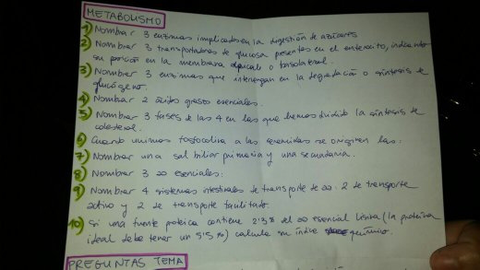 METABOLISMO
1) Nombrar 3 enzimas implicadas en la digestión de azúcares
2) Nombrar 3 transportadores de glucosa presentes en el enterocito, indicando
su posición en la membrana apical o basolateral.
3) Nombrar 3 enzimas que intervengan en la degradación o síntesis de
glucógeno.
4) Nombrar 2 ácidos grasos esenciales.
5) Nombrar 3 fases de las 4 en las que hemos dividido la síntesis de
colesterol.
6) Cuando unimos fosfocolina a las ceramidas se originan las:
7) Nombrar una sal biliar primaria y una secundaria.
8) Nombrar 3 aa esenciales:
9) Nombrar 4 sistemas intestinales de transporte de aa. 2 de transporte
activo y 2 de transporte facilitado.
10) Si una fuente proteica contiene 2'3% del aa esencial lisina (la proteína
ideal debe tener un 5'5%) calcula su índice químico.
PREGUNTAS TEMA